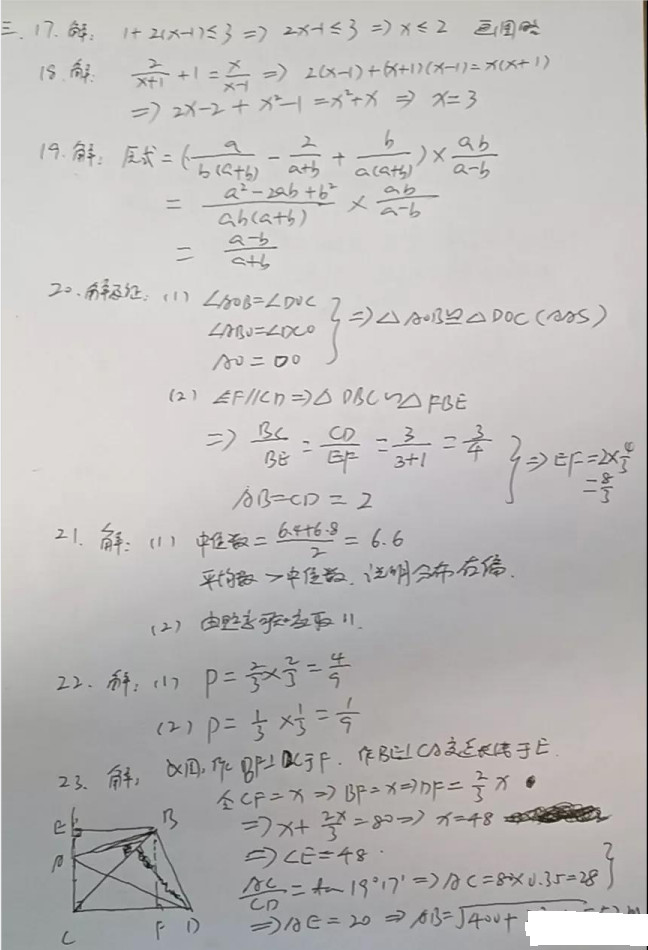 三. 17. 解: 1+2(x-1)≤3 => 2x-1≤3 => x≤2 画图略
18. 解: 2/(x+1) + 1 = x/(x-1) => 2(x-1)+(x+1)(x-1)=x(x+1)
=> 2x-2+x²-1=x²+x => x=3
19. 解: 原式=(a/(b(a+b)) - 2/(a+b) + b/(a(a+b)))×ab/(a-b)
= (a²-2ab+b²)/(ab(a+b)) × ab/(a-b)
= (a-b)/(a+b)
20. 解及证: (1) ∠AOB=∠DOC
∠ABO=∠DCO } => △AOB≌△DOC(AAS)
AO=DO
(2) EF//CD => △DBC∽△FBE
=> BC/BE = CD/EF = 3/(3+1) = 3/4 } => EF=2×4/3
=8/3
AB=CD=2
21. 解: (1) 中位数=(6.4+6.8)/2=6.6
平均数>中位数, 说明分布右偏.
(2) 由题意可知应取11.
22. 解: (1) P=2/3×2/3=4/9
(2) P=1/3×1/3=1/9
23. 解: 如图, 作BF⊥DC于F. 作BE⊥CA交延长线于E.
令CF=x => BF=x => DF=2/3x
=> x+2x/3=80 => x=48
=> CE=48.
AC/CD=tan19°17' => AC=80×0.35=28 }
=> AE=20 => AB=√400+
E B
A
C F D